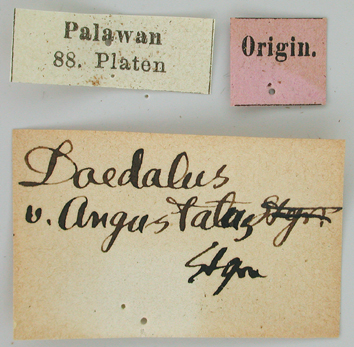 Palawan
88. Platen
Origin.
Daedalus
v. Angustatus Stgr.
Stgr